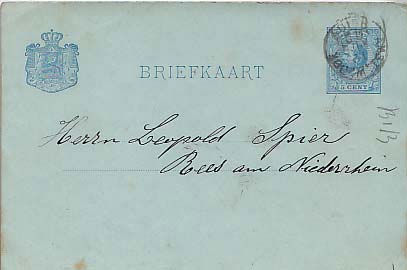 BRIEFKAART
5 CENT
Herrn Leopold Spier
Rees am Niederrhein